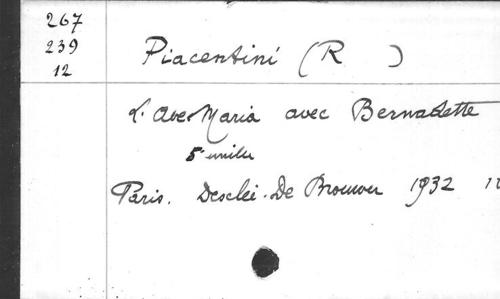 267
239
12
Piacentini (R )
L'Ave Maria avec Bernadette
5e mille
Paris. Desclée-De Brouwer 1932